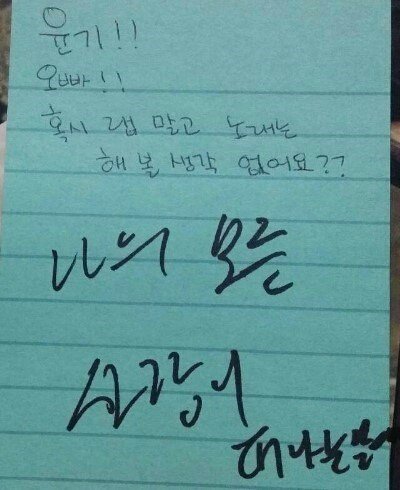 윤기!!
오빠!!
혹시 랩 말고 노래는
해 볼 생각 없어요??
나의 모든
사랑이
떠나는